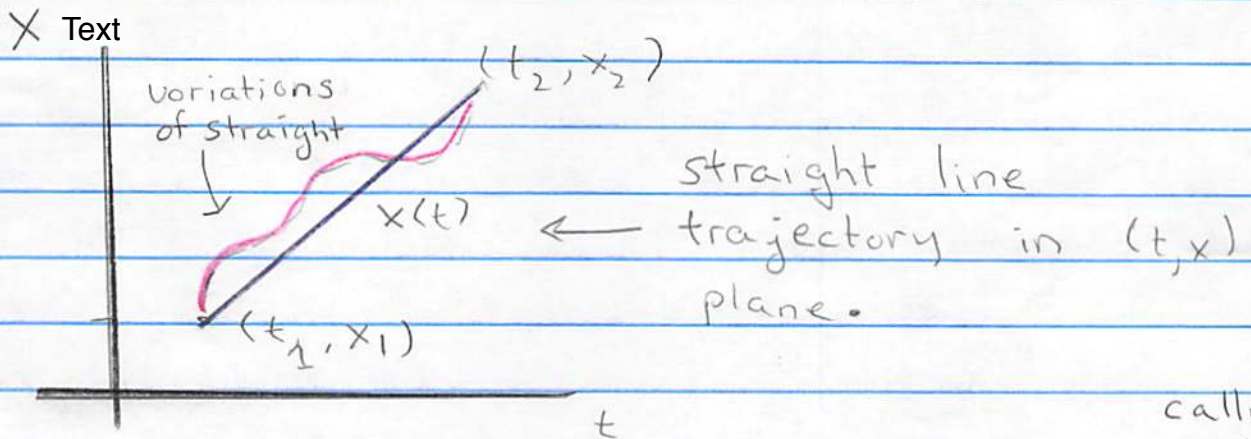 X Text
(t₂, x₂)
variations
of straight
x(t)
straight line
← trajectory in (t,x)
plane.
(t₁, x₁)
t